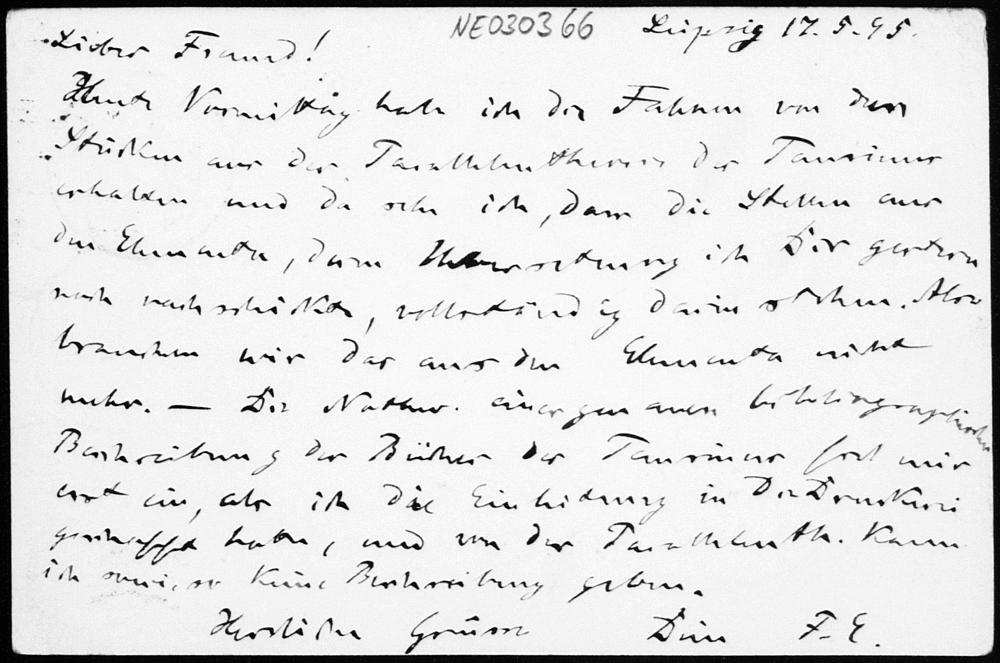 NE030366
Leipzig 17.5.95.
Lieber Freund!
Heute Vormittag habe ich die Fahnen von den
Stücken aus der Parallelentheorie des Taurinus
erhalten und da sehe ich, dass die Stellen aus
den Elementa, deren Uebersetzung ich Dir gestern
noch nachschickte, vollständig darin stehen. Also
brauchen wir das aus den Elementa nicht
mehr. — Die Nothw. einer genauen bibliographischen
Beschreibung der Bücher des Taurinus fiel mir
erst ein, als ich die Einleitung in die Druckerei
geschafft hatte, und von der Parallelenth. kann
ich sowieso keine Beschreibung geben.
Herzliche Grüsse Dein F. E.